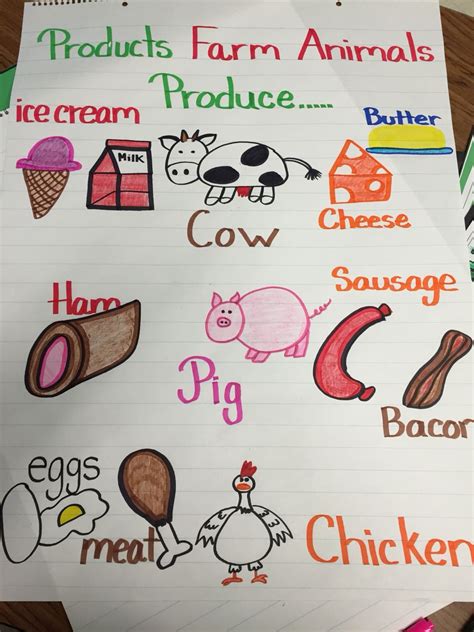 Products Farm Animals
Produce.....
ice cream
Butter
MILK
Cheese
Cow
Sausage
Ham
Pig
Bacon
eggs
meat
Chicken